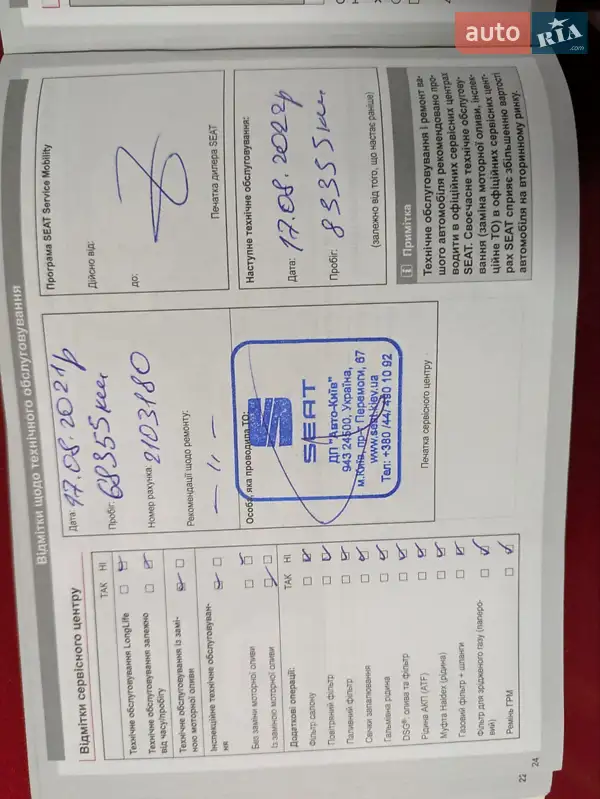 auto RIA.com
Відмітки щодо технічного обслуговування
Відмітки сервісного центру
ТАК НІ
Технічне обслуговування LongLife
Технічне обслуговування залежно
від часу/пробігу
Технічне обслуговування із замі-
ною моторної оливи
Інспекційне технічне обслуговуван-
ня
Без заміни моторної оливи
Із заміною моторної оливи
Додаткові операції: ТАК НІ
Фільтр салону
Повітряний фільтр
Паливний фільтр
Свічки запалювання
Гальмівна рідина
DSG® олива та фільтр
Рідина АКП (ATF)
Муфта Haldex (рідина)
Газовий фільтр + шланги
Фільтр для зрідженого газу (паперо-
вий)
Ремінь ГРМ
Дата: 17.08.2021р
Пробіг: 68355км
Номер рахунка: 2103180
Рекомендації щодо ремонту:
— ıı —
Особа, яка проводила ТО:
SEAT
ДП "Авто-Київ"
943 24500, Україна,
м.Київ, пр-т Перемоги, 67
www.seat-kiev.ua
Тел: +380 /44/ 490 10 92
Печатка сервісного центру
Програма SEAT Service Mobility
Дійсно від:
до:
Печатка дилера SEAT
Наступне технічне обслуговування:
Дата: 17.08.2022р
Пробіг: 83355км
(залежно від того, що настає раніше)
i Примітка
Технічне обслуговування і ремонт ва-
шого автомобіля рекомендовано про-
водити в офіційних сервісних центрах
SEAT. Своєчасне технічне обслугову-
вання (заміна моторної оливи, інспек-
ційне ТО) в офіційних сервісних цент-
рах SEAT сприяє збільшенню вартості
автомобіля на вторинному ринку.
22
24